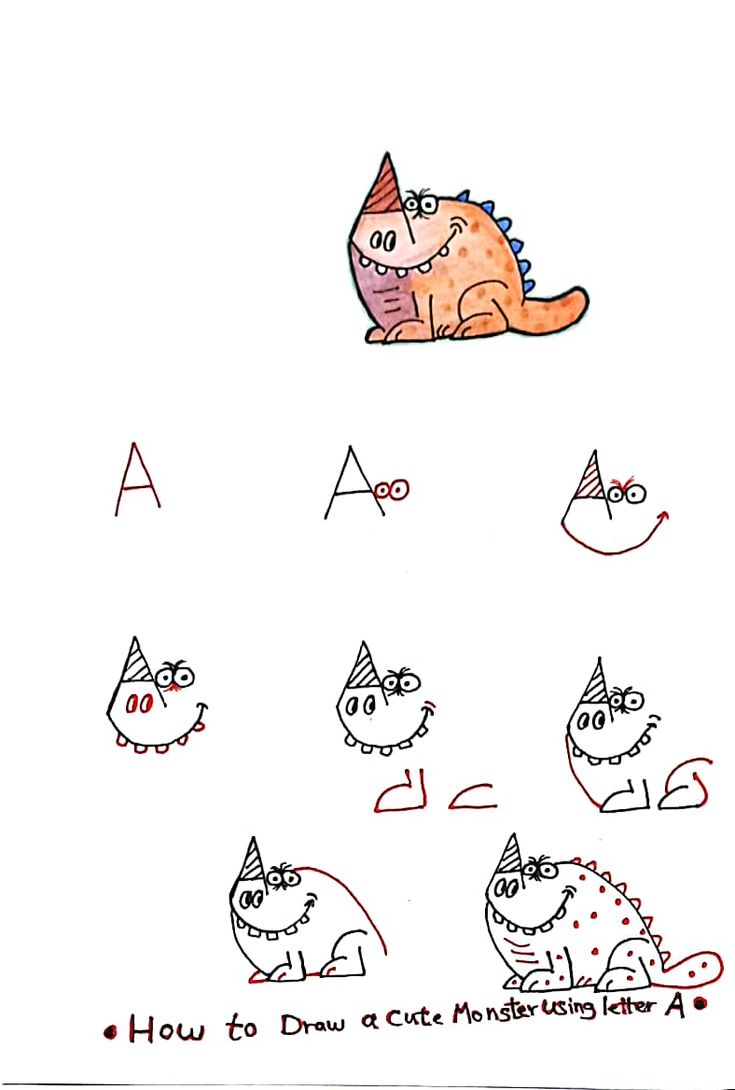 A
A
• How to Draw a Cute Monster using letter A •